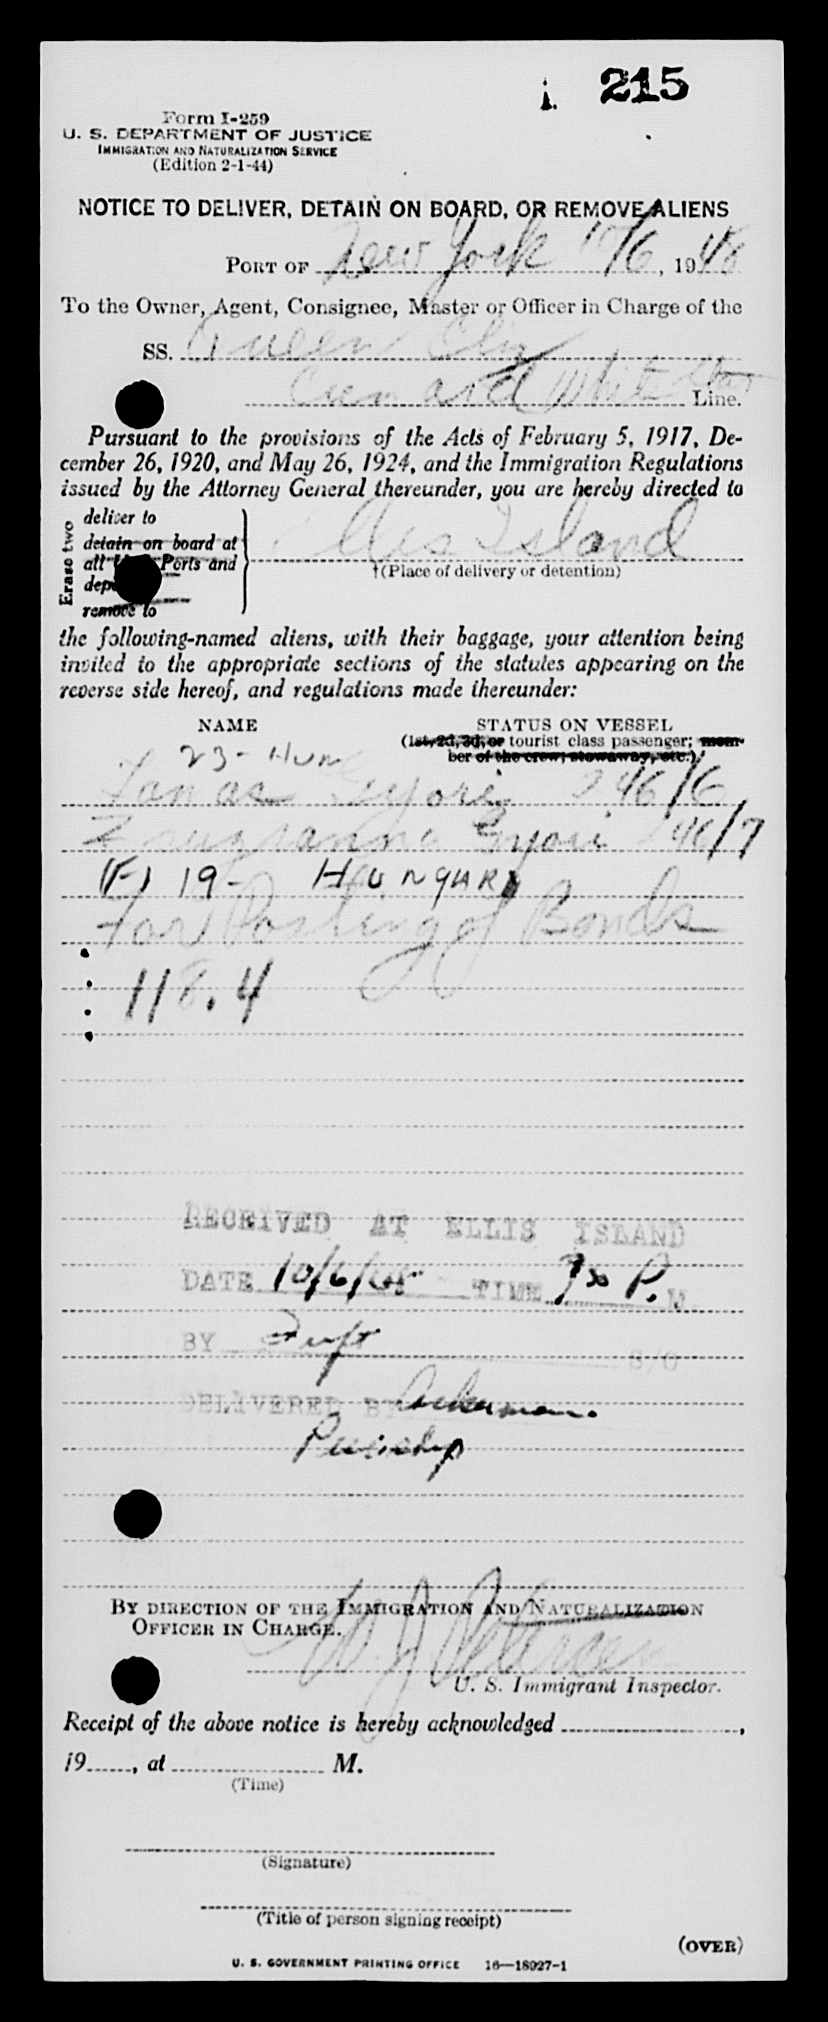 215
Form I-259
U. S. DEPARTMENT OF JUSTICE
IMMIGRATION AND NATURALIZATION SERVICE
(Edition 2-1-44)
NOTICE TO DELIVER, DETAIN ON BOARD, OR REMOVE ALIENS
PORT OF New York 10/6, 1948
To the Owner, Agent, Consignee, Master or Officer in Charge of the
SS. Queen Eliz
Cunard White Star Line.
Pursuant to the provisions of the Acts of February 5, 1917, De-
cember 26, 1920, and May 26, 1924, and the Immigration Regulations
issued by the Attorney General thereunder, you are hereby directed to
Erase two
deliver to
detain on board at
all Ports and
remove to
Ellis Island
†(Place of delivery or detention)
the following-named aliens, with their baggage, your attention being
invited to the appropriate sections of the statutes appearing on the
reverse side hereof, and regulations made thereunder:
NAME STATUS ON VESSEL
(1st, 2d, 3d, or tourist class passenger; mem-
ber of the crew; stowaway, etc.)
23- Hun
Gyori 246/6
Gyori 246/7
(F) 19- HUNGARY
For Posting of Bonds
118.4
RECEIVED AT ELLIS ISLAND
DATE 10/6/48 TIME P. M
BY S/O
DELIVERED BY Ackerman
BY DIRECTION OF THE IMMIGRATION AND NATURALIZATION
OFFICER IN CHARGE.
U. S. Immigrant Inspector.
Receipt of the above notice is hereby acknowledged ,
19 , at M.
(Time)
(Signature)
(Title of person signing receipt)
(OVER)
U. S. GOVERNMENT PRINTING OFFICE 16—18927-1